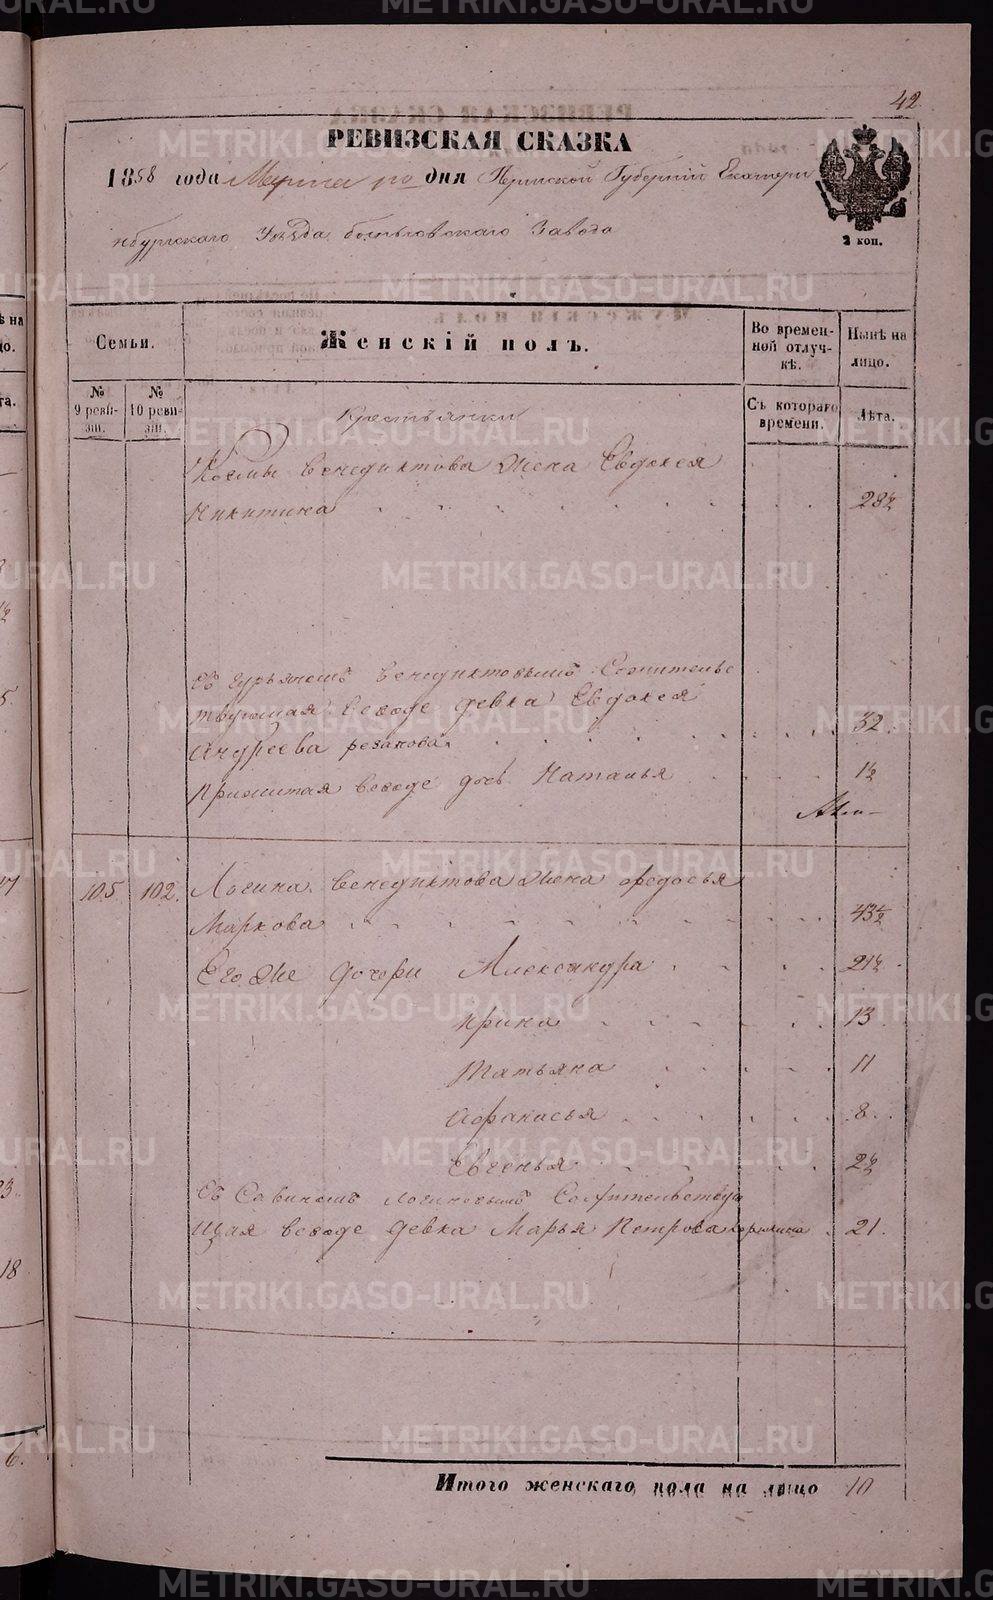 42
РЕВИЗСКАЯ СКАЗКА
1858 года Марта по дня Пермской Губернии Екатери
нбургскаго Уезда Завода
Семьи.
Женскій полъ.
Во времен-
ной отлуч-
кѣ.
Нынѣ на
лицо.
2 коп.
№
9 реви-
зіи.
№
10 реви-
зіи.
Съ котораго
времени.
Лѣта.
Крестьянки
Козмы Венедиктова жена Евдокея
Никитина 28½
Съ Гурьяномъ Венедиктовымъ Сожительс
твующая всводе девка Евдокея
Андреева резанова 32
Прижитая всводе дочь Наталья 1½
105 102 Логина Венедиктова жена Федосья
Маркова 43½
Его же дочери Александра 21½
Ирина 13
Татьяна 11
Афанасья 8
Евгенья 2½
Съ Савиномъ Логиновымъ Сожительству
щая всводе девка Марья Петрова 21
Итого женскаго пола на лицо 10
METRIKI.GASO-URAL.RU